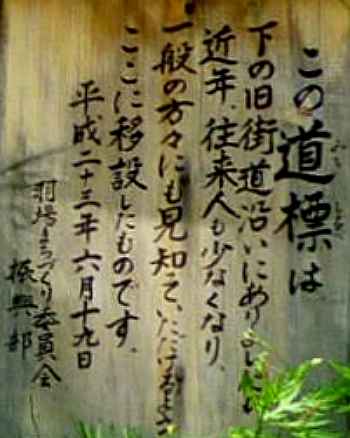 この道標は
下の旧街道沿いにありましたが
近年、往来人も少なくなり、
一般の方々にも見知っていただけるよう
ここに移設したものです。
平成二十三年六月十九日
羽場まちづくり委員会
振興部